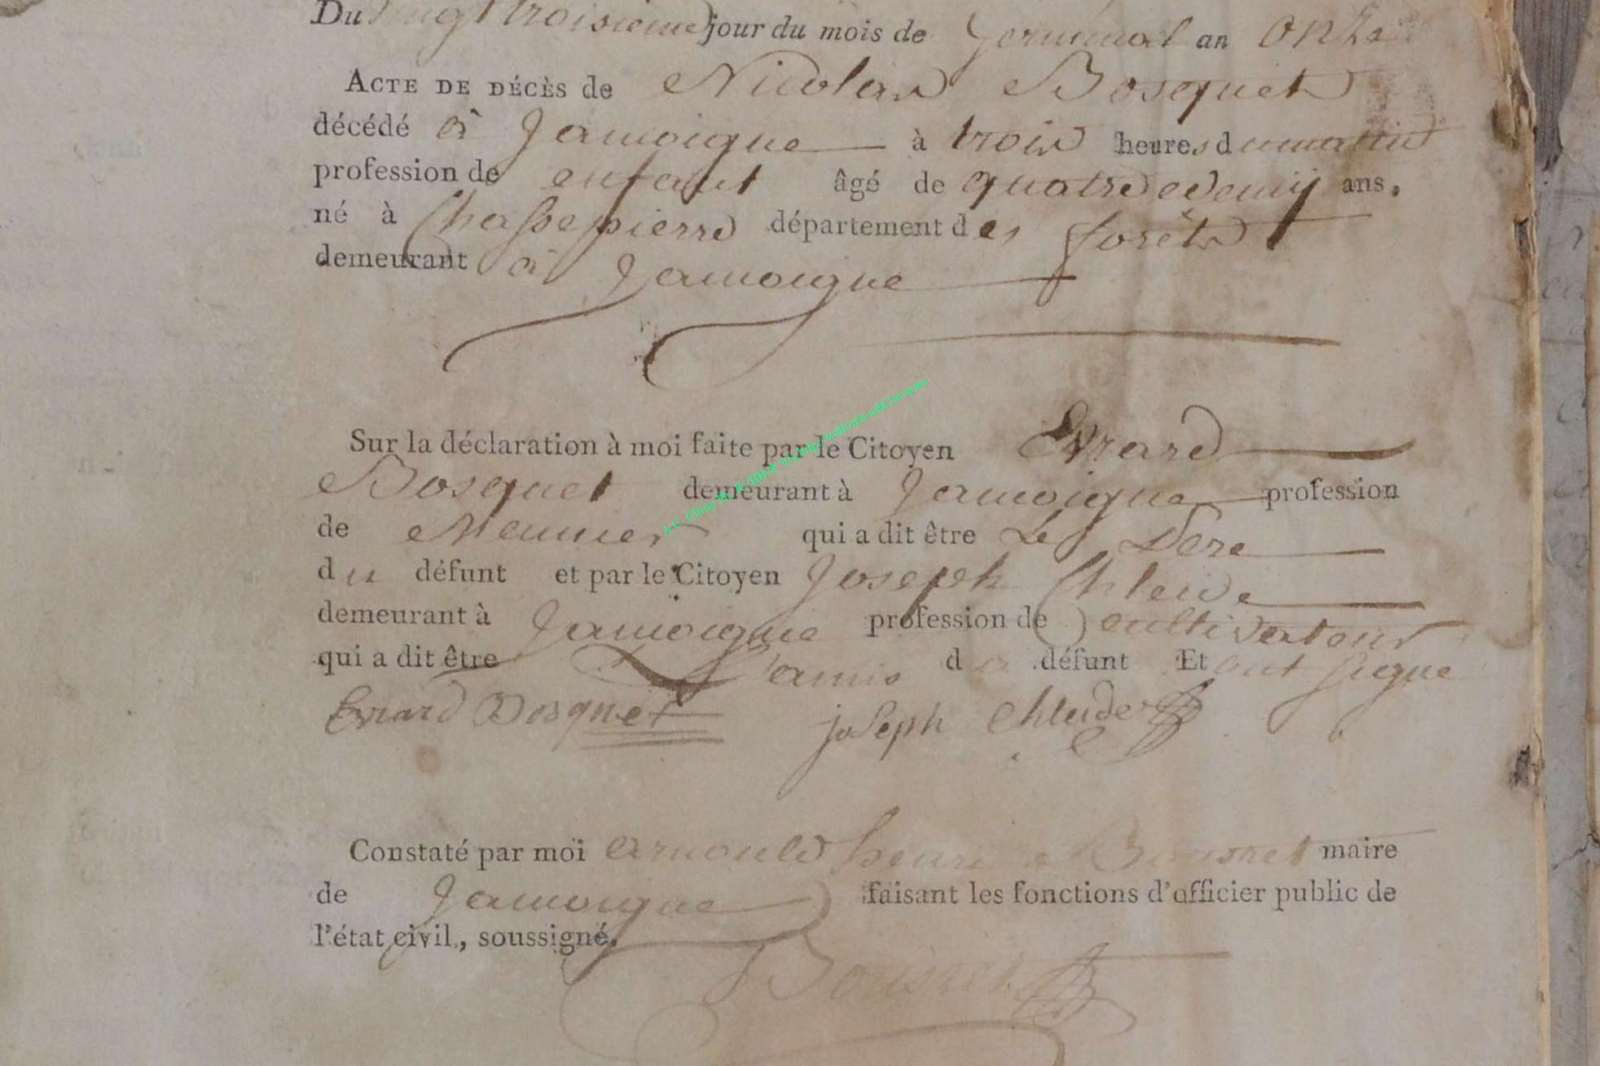 Du vingt troisieme jour du mois de Germinal an onze
ACTE DE DÉCÈS de Nicolas Bosquet
décédé à Jamoigne à trois heures du matin
profession de enfant âgé de quatre et demy ans.
né à Chassepierre département des forêts
demeurant à Jamoigne
Sur la déclaration à moi faite par le Citoyen Evrard
Bosquet demeurant à Jamoigne profession
de Meunier qui a dit être Le Pere
du défunt et par le Citoyen Joseph Chleide
demeurant à Jamoigne profession de cultivateur
qui a dit être L'amis d défunt Et ont signé
Evrard Bosquet joseph Chleide
Constaté par moi arnould henri maire
de Jamoigne faisant les fonctions d'officier public de
l'état civil, soussigné.